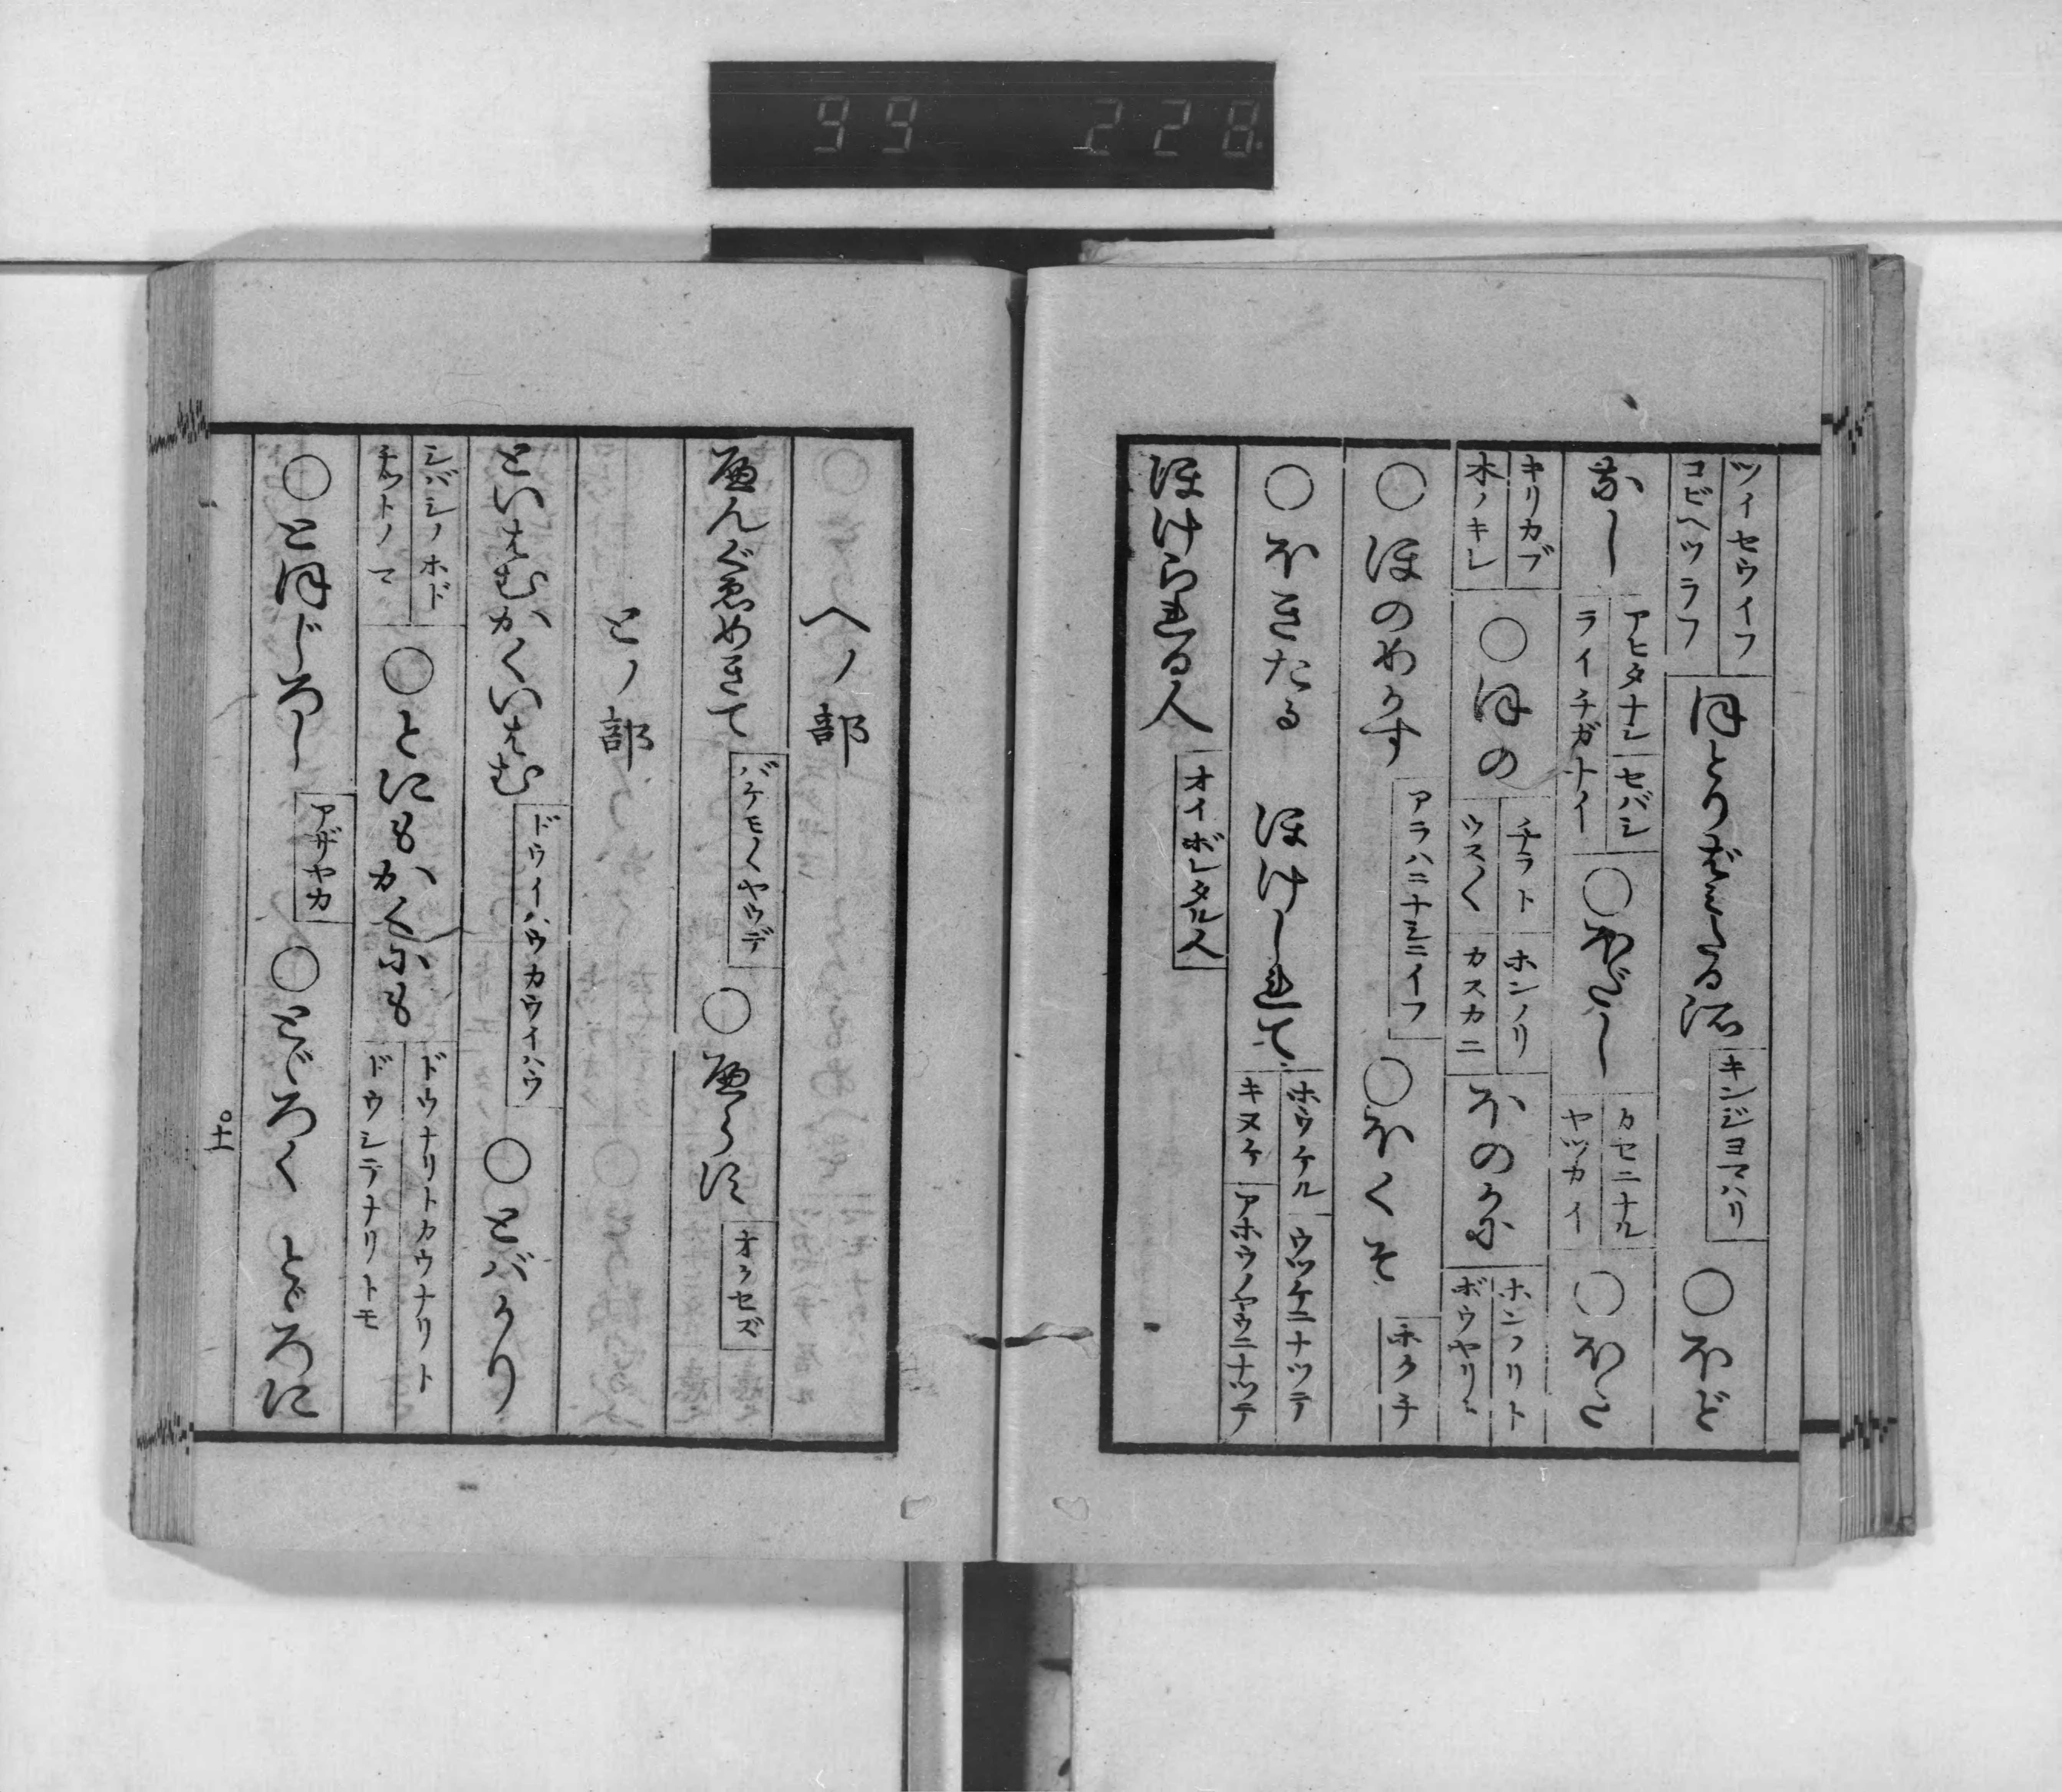 99 228
ツイセウイフ
コビヘツラフ
キンジヨマハリ
○ほど
なし
アヒタナシ
ライチガナイ
セバシ
○ほだし
カセニナル
ヤツカイ
○ほた
キリカブ
木ノキレ
○ほの
チラト
ウスク
ホンノリ
カスカニ
ほのかに
ホンノリト
○ほのめかす
アラハニナシニイフ
○ほくそ
ホクチ
○ほきたる
ほけしれて
ホウケル
キヌケ
ウツケニナツテ
アホウノヤウニナツテ
ほけらるる人
オイボレタル人
ヘノ部
へんぐゑめきて
バケモノヽヤウデ
○へらに
オクセズ
とノ部
といはむかくいはむ
ドウイハウカウイハウ
○とバかり
シバシノホド
チツトノマ
○とにもかくにも
ドウナリトカウナリト
ドウシテナリトモ
○とほじろし
アザヤカ
○とどろく
とどろに